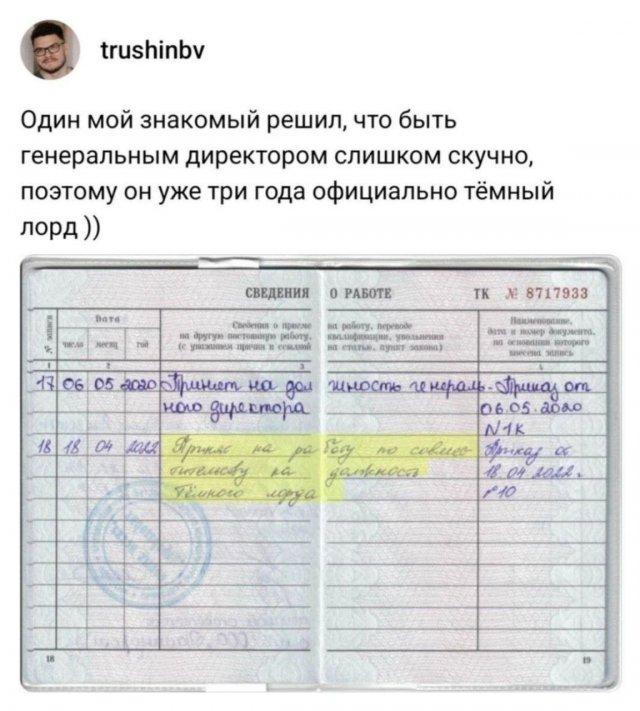 trushinbv
Один мой знакомый решил, что быть
генеральным директором слишком скучно,
поэтому он уже три года официально тёмный
лорд ))
СВЕДЕНИЯ О РАБОТЕ ТК № 8717933
№ записи
Дата
Сведения о приеме на работу, переводе
на другую постоянную работу, квалификации, увольнении
(с указанием причин и ссылкой на статью, пункт закона)
Наименование,
дата и номер документа,
на основании которого
внесена запись
число месяц год
1 2 3 4
17 06 05 2020 Принят на должность генераль- Приказ от
ного директора 06.05.2020
N1К
18 18 04 2022 Принят на работу по совмес Приказ от
тительству на должность 18.04.2022.
Тёмного лорда №10
18 19